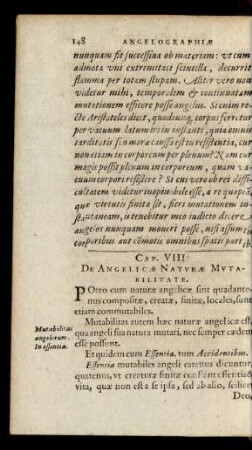 148 ANGELOGRAPHIÆ
nunquam fit successiua ob materiam: vt cum
admota vni extremitati scintilla, decurrit
flamma per totam stupam. Aliter vero non
videtur mihi, temporalem & continuatam
mutationem efficere posse angelus. Si enim re-
cte Aristoteles dixit, quodcunq, corpus fertur
per vacuum latum iri in instanti, quia
tarditatis seu moræ caussa est resistentia, cur
non etiam in corporeum per plenum? Nam
magis possit plenum in corporeum, quam
vacuum corpori resistere? Si cui vero ob rei diffi-
cultatem videtur improbabile esse, a re quapiã
quæ virtutis finitæ sit, fieri mutationem in-
stantaneam, is tenebitur meo iudicio dicere,
angelos nunquam mouere posse, nisi assum
corporibus aut commotis omnibus spatij par
CAP. VIII.
DE ANGELICÆ NATVRÆ MVTA-
BILITATE.
POrro cum naturæ angelicæ sint quadante-
nus compositæ, creatæ, finitæ, locales, sunt
etiam commutabiles.
Mutabilitas autem hæc naturæ angelicæ est,
Mutabilitas qua angeli sua natura mutari, nec semper eædem
angelorum. esse possent.
In essentia. Et quidem cum Essentia, tum Accidentibus.
Essentia mutabiles angeli eatenus dicuntur,
quatenus, vt creaturæ finitæ constant essentia &
vita, quæ non est a se ipsa, sed ab alio, scilicet
Deo,